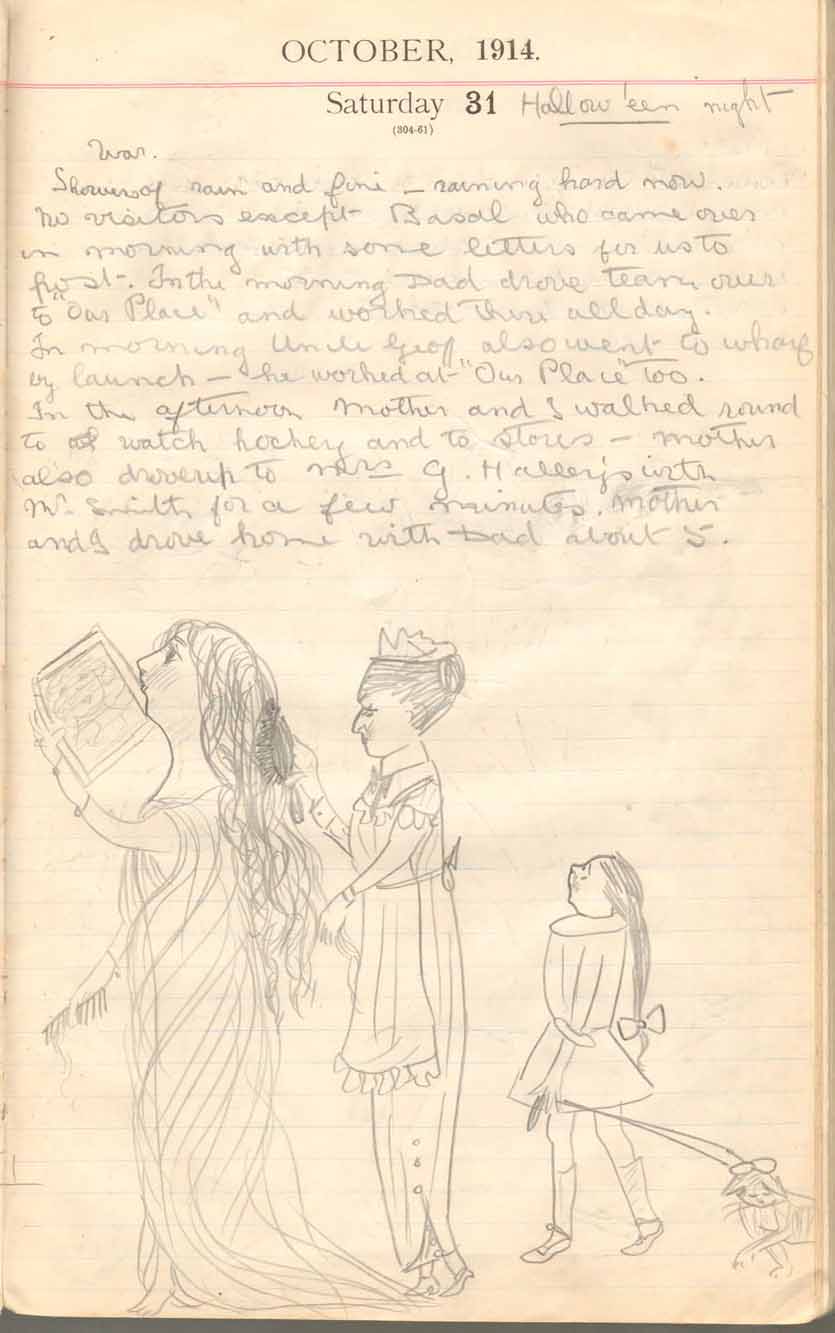 OCTOBER, 1914.
Saturday 31 Hallow'een night
(304-61)
War.
Showers of rain and fine – raining hard now.
No visitors except Basil who came over
in morning with some letters for us to
post. In the morning Dad drove team over
to "Our Place" and worked there all day.
In morning Uncle Geof also went to wharf
by launch – he worked at "Our Place" too.
In the afternoon Mother and I walked round
to watch hockey and to stores – Mother
also drove up to Mrs G. Halley's with
Mr. Smith for a few minutes. Mother
and I drove home with Dad about 5.